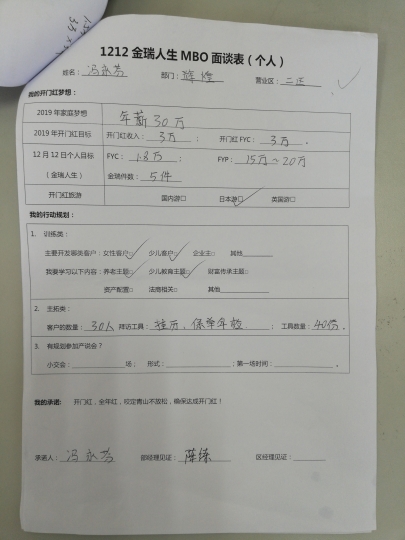 1212 金瑞人生 MBO 面谈表（个人）
姓名：冯永芬 部门：辉煌 营业区：二区
我的开门红梦想：
2019 年家庭梦想 年薪30万
2019 年开门红目标 开门红收入：3万； 开门红 FYC：3万。
12 月 12 日个人目标（金瑞人生） FYC：1.8万； FYP：15万~20万
金瑞件数：5件
开门红旅游 国内游□ 日本游□✓ 英国游□
我的行动规划：
1. 训练类：
主要开发哪类客户：女性客户□✓ 少儿客户□✓ 企业主□ 其他
我要学习以下内容：养老主题□✓ 少儿教育主题□✓ 财富传承主题□
资产配置□ 法商相关□ 其他
2. 主拓类：
客户的数量：30人 拜访工具：挂历、保单年检； 工具数量：40份。
3. 有规划参加产说会？
小交会：场； 形式：；第一场时间：。
我的承诺： 开门红，全年红，咬定青山不放松，确保达成开门红！
承诺人：冯永芬 部经理见证：陈 区经理见证：